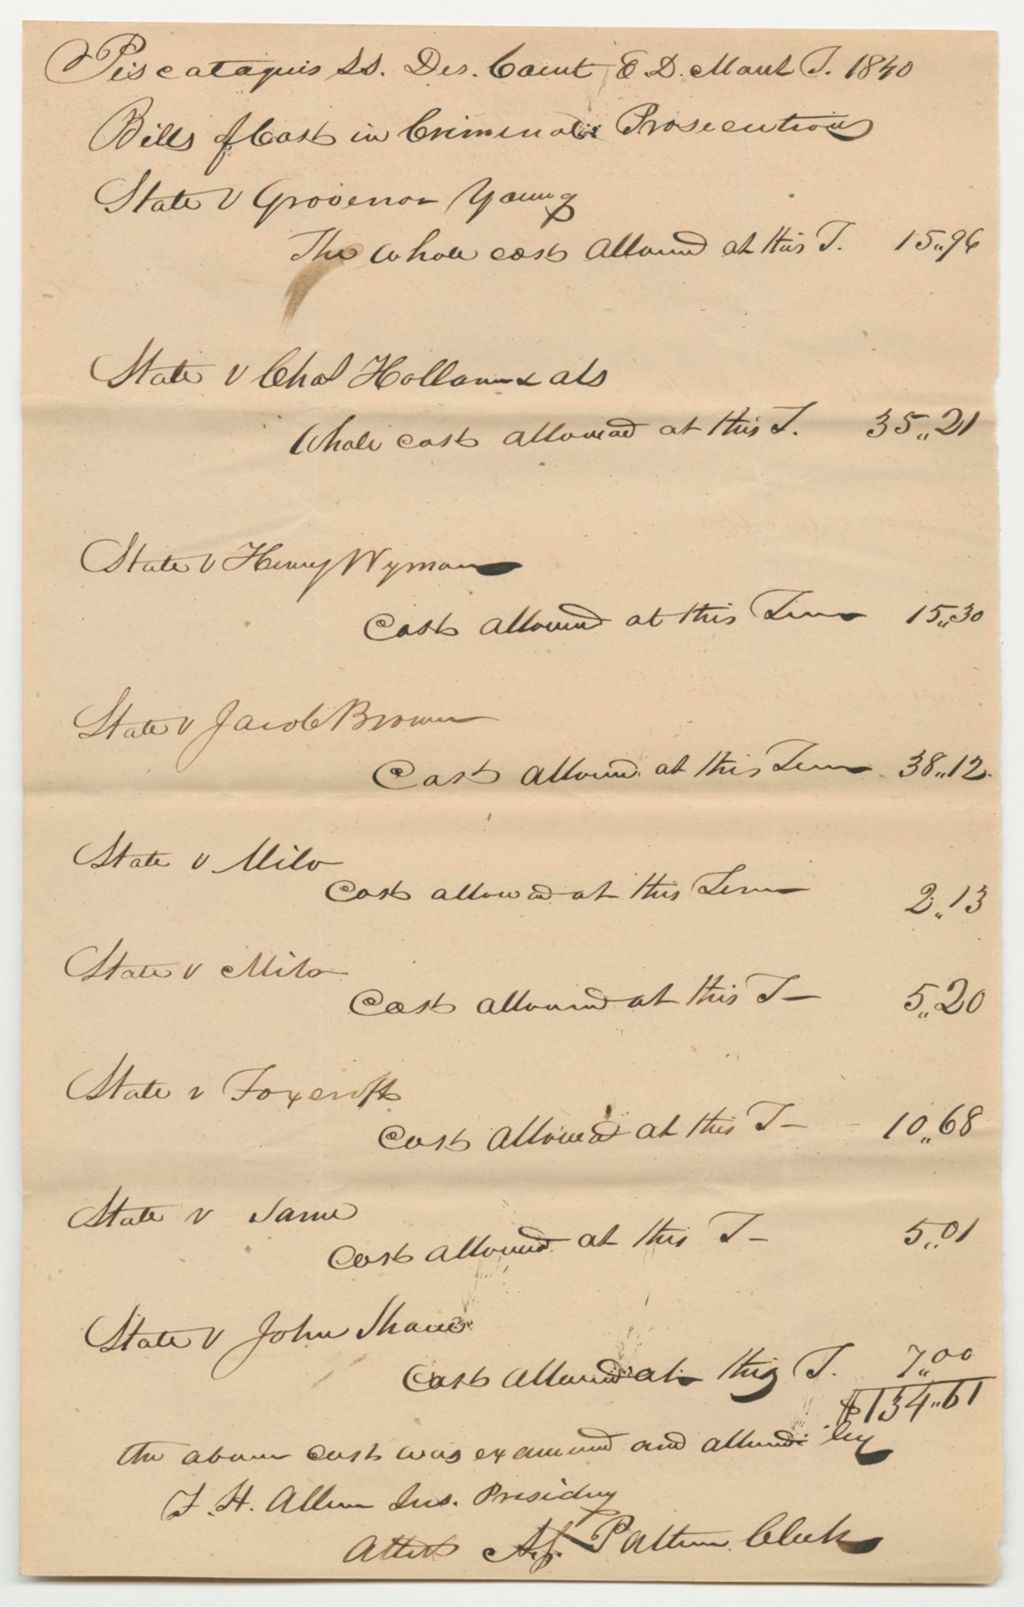 Piscataquis SS. Dis. Court E. D. March T. 1840
Bills of Cost in Criminal Prosecutions
State v Grovenor Young
The whole cost allowed at this T. 15,,96
State v Chas Hollan & als
Whole cost allowed at this T. 35,,21
State v Henry Wyman
Cost allowed at this Term 15,,30
State v Jacob Brown
Cost allowed at this Term 38,,12
State v Milo
Cost allowed at this Term 2,,13
State v Milo
Cost allowed at this T— 5,,20
State v Foxcroft
Cost allowed at this T— 10,,68
State v Same
Cost allowed at this T— 5,,01
State v John Shaw
Cost allowed at this T. 7,,00
$134,,61
the above cost was examined and allowed by
F. H. Allen Jus. Presiding
Attest Patten Clerk